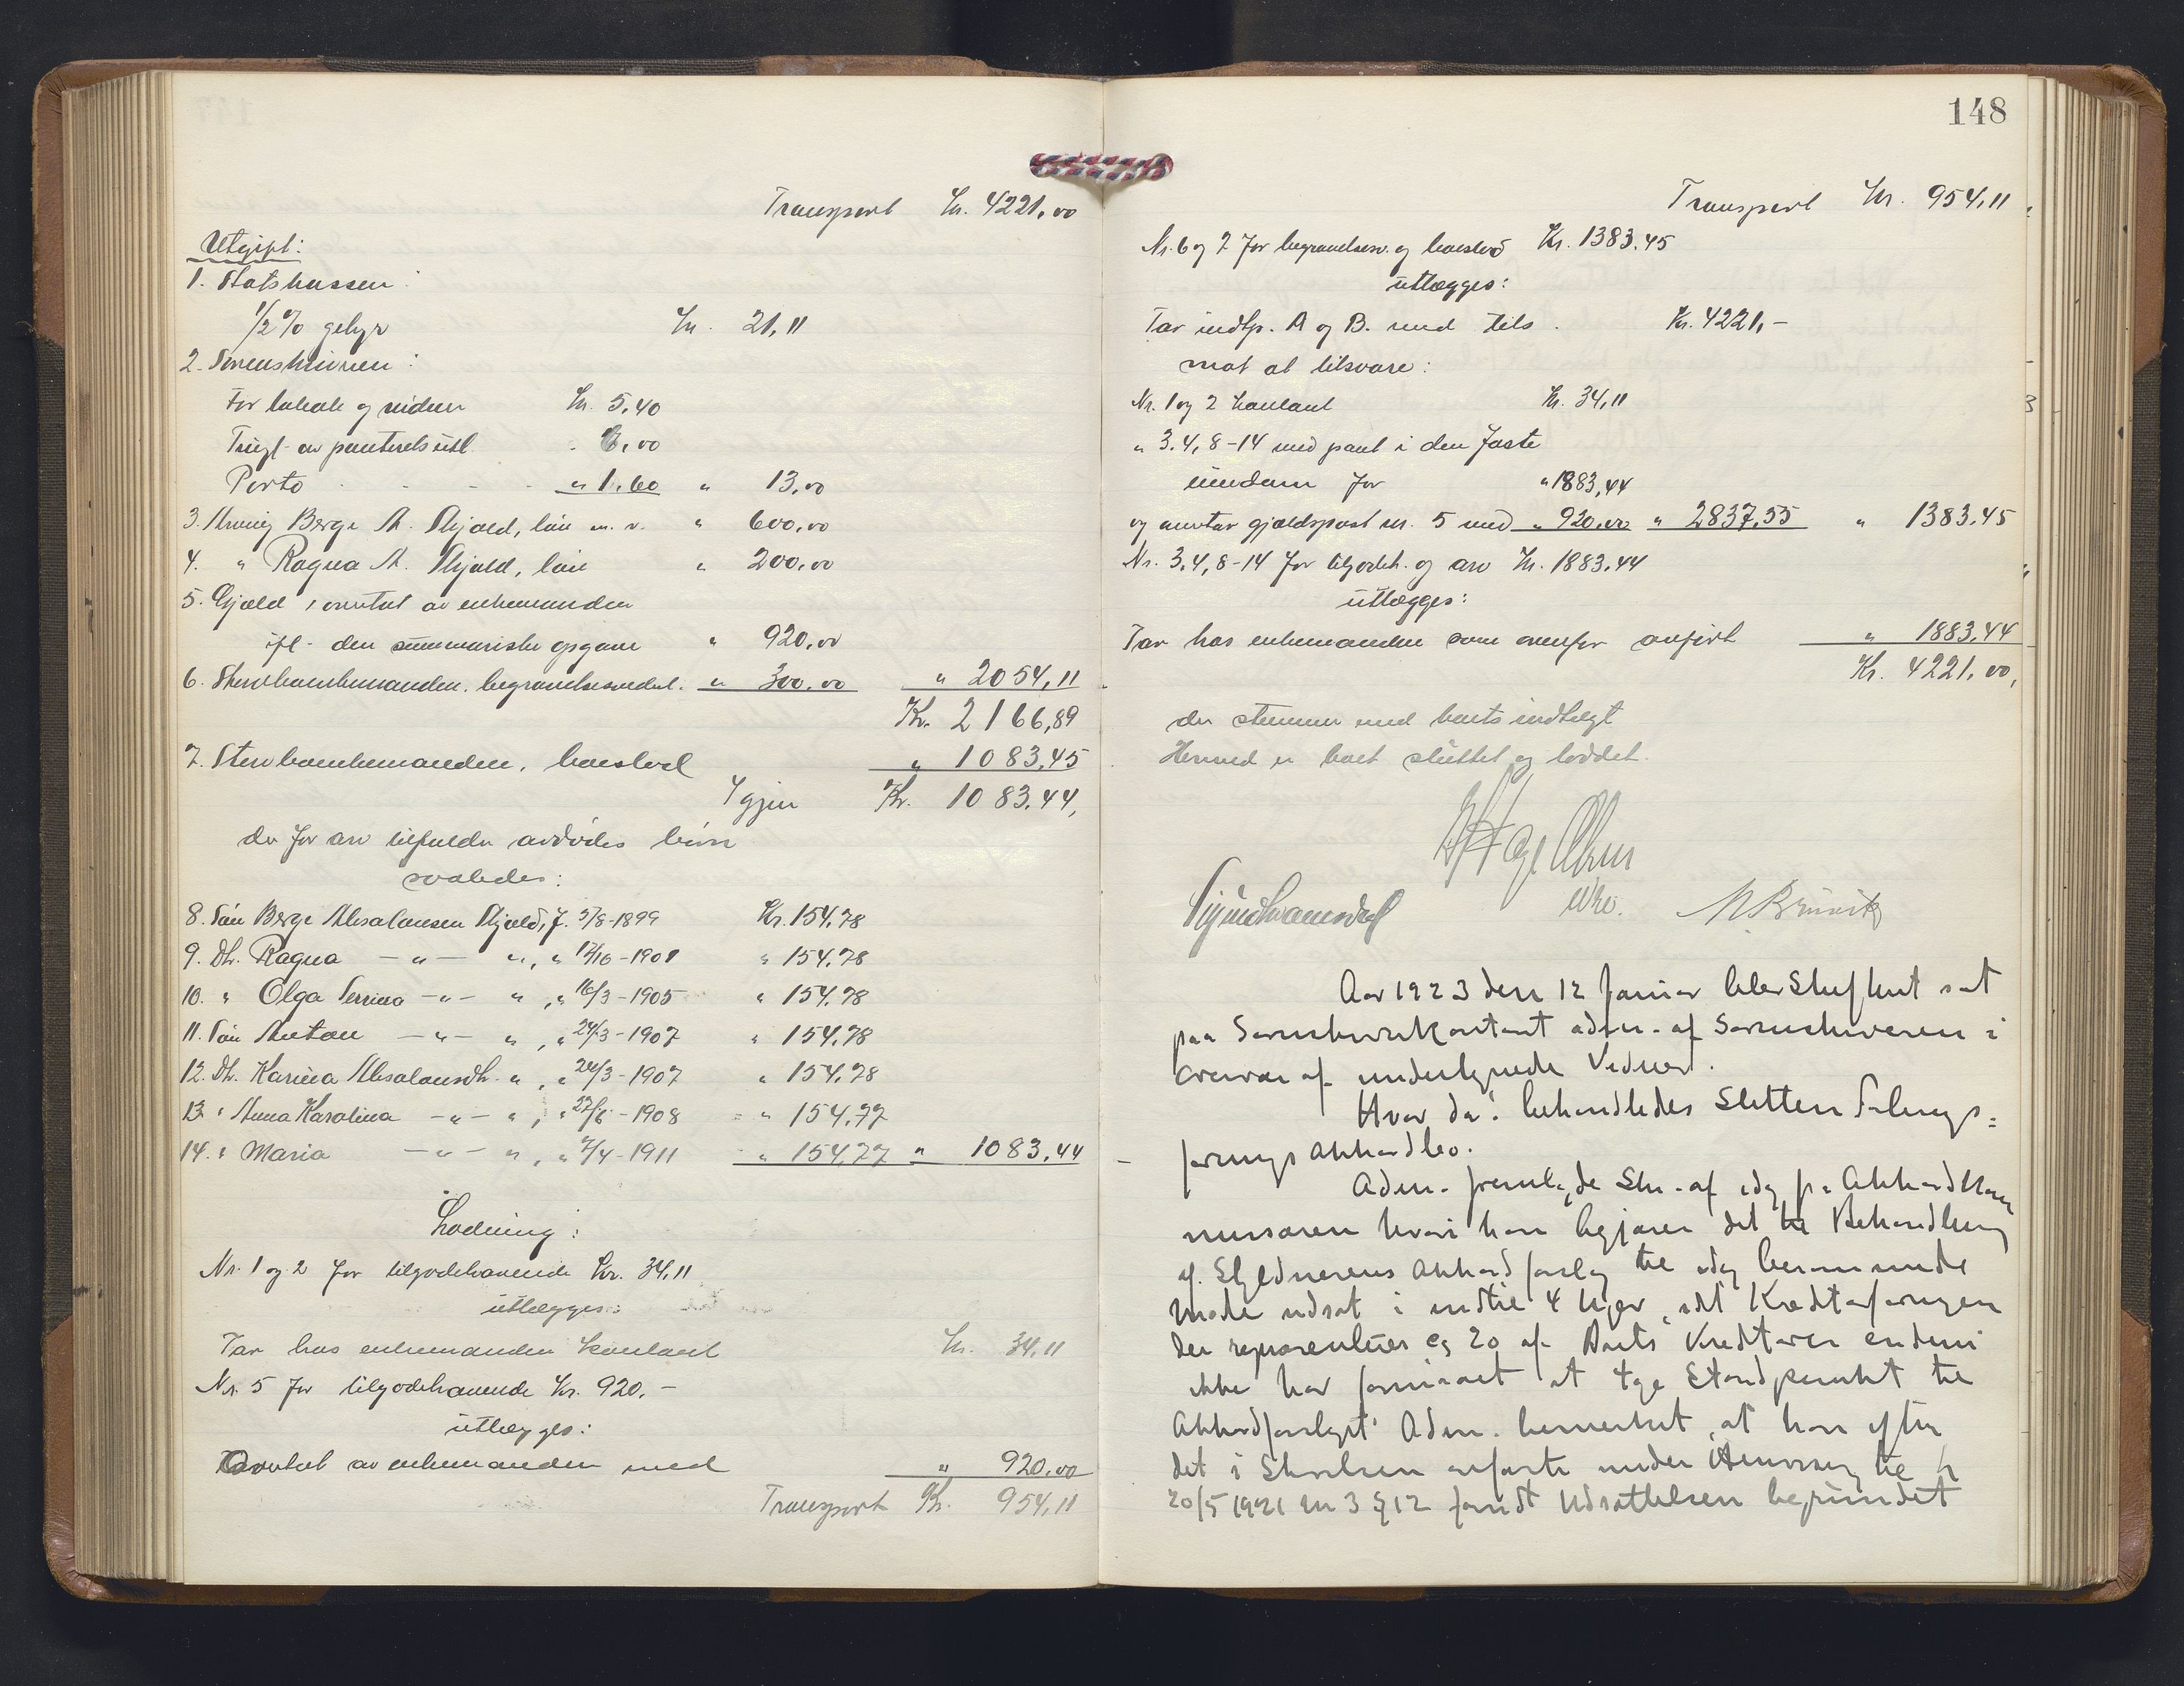 Transport Kr. 4221,00
Utgift:
1. Statskassen:
1/2 % gebyr Kr. 21,11
2. Sorenskriveren:
For lokale og vidner Kr. 5,40
Tingl. av panteretsutl. 6,00
Porto " 1,60 " 13,00
3. Arving Berge A. Skjold, lån m. v. " 600,00
4. " Ragna A. Skjold, lån " 200,00
5. Gjæld, overtat av enkemanden
ifl. den summariske opgave " 920,00
6. Stervboenkemanden, begravelsesvederl. " 300,00 " 2054,11
Kr. 2166,89
7. Stervboenkemanden, boeslod " 1083,45
Igjen Kr. 1083,44,
der for arv tilfalder avdødes børn
saaledes:
8. Søn Berge Absalonsen Skjold, f. 3/8-1899 Kr. 154,78
9. Dtr. Ragna —"— ", " 12/10-1901 " 154,78
10. " Olga Serina —"— ", " 16/3-1905 " 154,78
11. Søn Anton —"— ", " 24/3-1907 " 154,78
12. Dtr. Karina Absalonsdtr. ", " 24/3-1907 " 154,78
13. " Anna Karolina —"— ", " 27/6-1908 " 154,77
14. " Maria —"— ", " 7/4-1911 " 154,77 " 1083,44
Lodning:
Nr. 1 og 2 for tilgodehavende Kr. 34,11
utlægges:
Tar hos enkemanden kontant Kr. 34,11
Nr. 5 for tilgodehavende Kr. 920,-
utlægges:
Overtat av enkemanden med " 920,00
Transport Kr. 954,11
148
Transport Kr. 954,11
Nr. 6 og 7 for begravelsesv. og boeslod Kr. 1383,45
utlægges:
Tar indtp. A og B. med tils. Kr. 4221,-
mot at tilsvare:
Nr. 1 og 2 kontant Kr. 34,11
" 3,4, 8-14 med pant i den faste
eiendom for " 1883,44
og overtar gjældspost nr. 5 med " 920,00 " 2837,55 " 1383,45
Nr. 3,4, 8-14 for tilgodeh. og arv Kr. 1883,44
utlægges:
Tar hos enkemanden som ovenfor anført " 1883,44
Kr. 4221,00,
der stemmer med boets indtægt
Hermed er boet sluttet og loddet.
Aar 1923 den 12 Januar blev Skifteret sat
paa Sorenskriverkontoret adm. af Sorenskriveren i
Overvær af undertegnede Vidner.
Hvor da: behandledes Sletten
Akkordbo.
Adm. fremlagde Skr. af idag fra
hvori han begjærer det til Behandling
af Skyldnerens Akkordforslag til idag berammede
Møde udsat i indtil 4 Uger, idet Kreditorforeningen
der repræsenterer ca 20 af Boets Kreditorer endnu
ikke har at tage Standpunkt til
Akkordforslaget. Adm. bemerket, at han efter
det i Skrivelsen anførte under Henvisning til L
20/5 1921 nr 3 § 12 fandt Udsættelsen begrundet